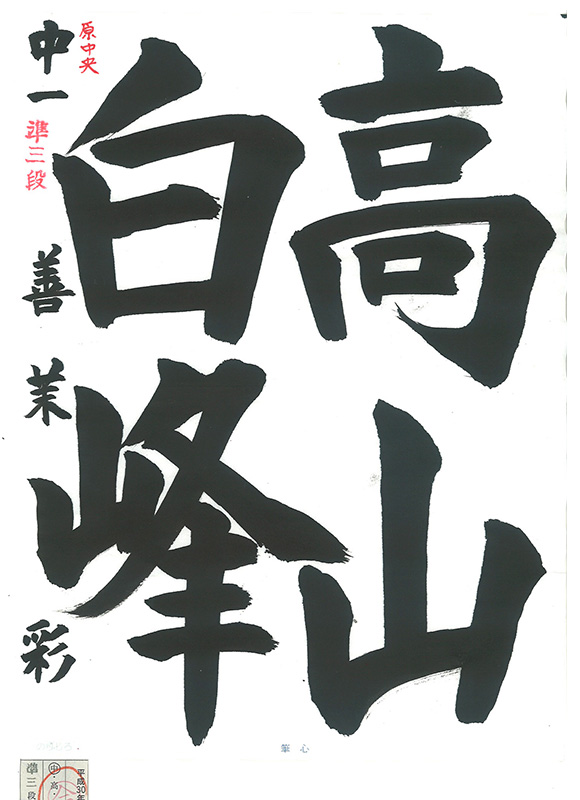 高山
白峰
原中央
中一 準三段 善茉彩
心筆
平成30年
中・高・
準三段